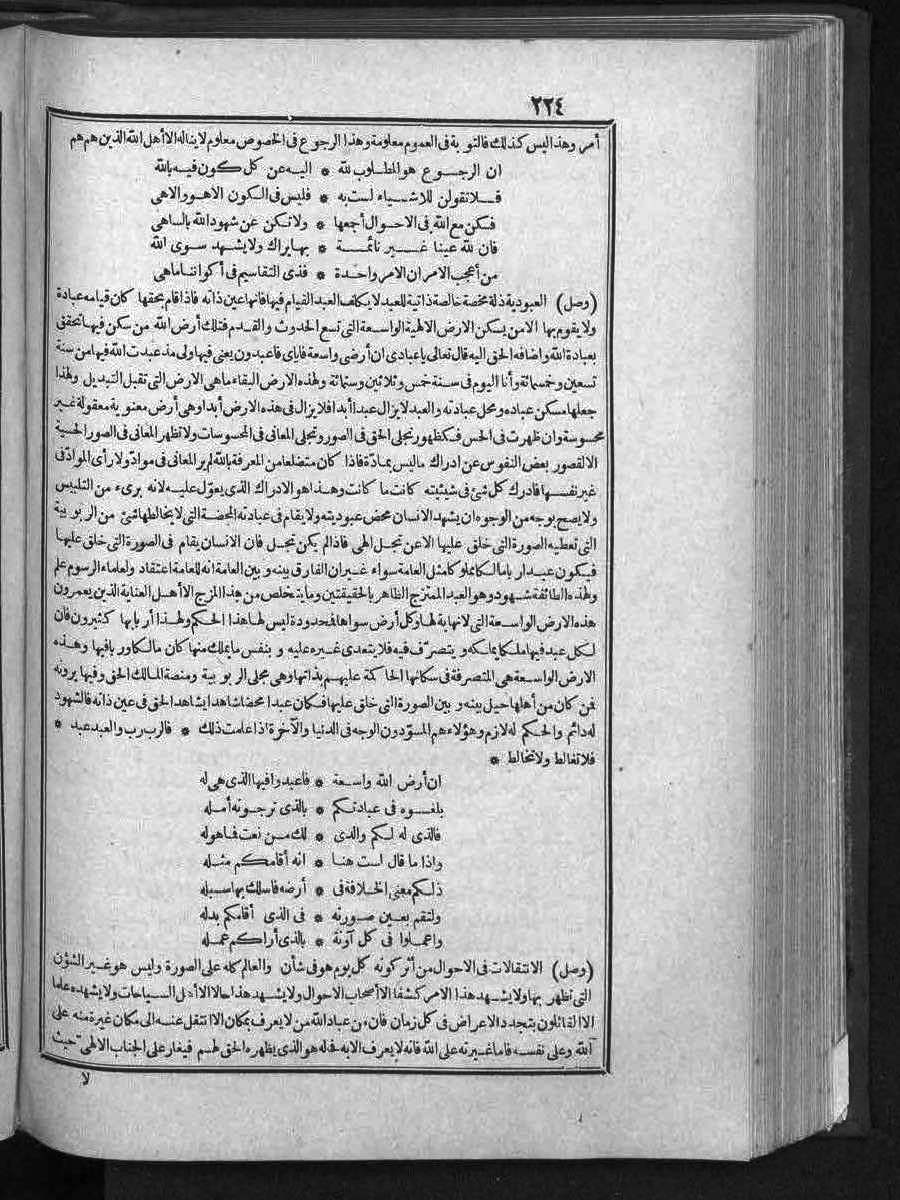 ٢٢٤
أمر وهذا ليس كذلك فالتوبة فى العموم معلومة وهذا الرجوع فى الخصوص معلوم لا يناله الا أهل الله الذين هم هم
ان الرجوع هو المطلوب لله * اليه عن كل كون فيه بالله
فلا تقولن للاشياء لست به * فليس فى الكون الا هو والا هى
فكن مع الله فى الاحوال أجمعها * ولا تكن عن شهود الله بالساهى
فان لله عينا غير نائمة * بها يراك ولا يشهد سوى الله
من أعجب الامر ان الامر واحدة * فذى التقاسيم فى أكواننا ماهى
(وصل) العبودية ذلة محضة خالصة ذاتية للعبد لا يكلف العبد القيام فيها فانها عين ذاته فاذا قام بحقها كان قيامه عبادة
ولا يقوم بها الا من يسكن الارض الالهية الواسعة التى تسع الحدوث والقدم فتلك أرض الله من سكن فيها تحقق
بعبادة الله واضافه الحق اليه قال تعالى يا عبادى ان أرضى واسعة فاياى فاعبدون يعنى فيها ولى مذ عبدت الله فيها من سنة
تسعين وخمسمائة وأنا اليوم فى سنة خمس وثلاثين وستمائة ولهذه الارض البقاء ماهى الارض التى تقبل التبديل ولهذا
جعلها مسكن عباده ومحل عبادته والعبد لا يزال عبدا أبدا فلا يزال فى هذه الارض أبدا وهى أرض معنوية معقولة غير
محسوسة وان ظهرت فى الحس فكظهور تجلى الحق فى الصور وتجلى المعانى فى المحسوسات ولا تظهر المعانى فى الصور الحسية
الا لقصور بعض النفوس عن ادراك ما ليس بمادّة فاذا كان متضلعا من المعرفة بالله لم ير المعانى فى موادّ ولا رأى الموادّ فى
غير نفسها فادرك كل شئ فى شيئيته كانت ما كانت وهذا هو الادراك الذى يعوّل عليه لانه برىء من التلبيس
ولا يصح بوجه من الوجوه ان يشهد الانسان محض عبوديته ولا يقام فى عبادته المحضة التى لا يخالطها شئ من الربوبية
التى تعطيه الصورة التى خلق عليها الا عن تجل الهى فاذا لم يكن تجل فان الانسان يقام فى الصورة التى خلق عليها
فيكون عبدا ربا مالكا مملوكا مثل العامة سواء غير ان الفارق بينه وبين العامة انه للعامة اعتقاد ولعلماء الرسوم علم
ولهذه الطائفة شهود وهو العبد الممتزج الظاهر بالحقيقتين وما يتخلص من هذا المزج الا أهل العناية الذين يعمرون
هذه الارض الواسعة التى لا نهاية لها وكل أرض سواها فمحدودة ليس لها هذا الحكم ولهذا أربابها كثيرون فان
لكل عبد فيها ملكا يملكه ويتصرّف فيه فلا يتعدى غيره عليه وبنفس ما يملك منها كان مالكا وربا فيها وهذه
الارض الواسعة هى المتصرفة فى سكانها الحاكمة عليهم بذاتها وهى مجلى الربوبية ومنصة المالك الحق وفيها يرونه
فمن كان من أهلها حيل بينه وبين الصورة التى خلق عليها فكان عبدا محضا شاهدا يشاهد الحق فى عين ذاته فالشهود
له دائم والحكم له لازم وهؤلاء هم المسوّدون الوجه فى الدنيا والآخرة اذا علمت ذلك * فالرب رب والعبد عبد *
فلا تغالط ولا تخالط *
ان أرض الله واسعة * فاعبدوا فيها الذى هى له
بلغوه فى عبادتكم * بالذى ترجونه أمله
فالذى له لكم والذى * لك من نعت فما هو له
واذا ما قال لست هنا * انه أقامكم مثله
ذلكم معنى الخلافة فى * أرضه فاسلك بها سبله
ولتقم بعين صورته * فى الذى أقامكم بدله
واعملوا فى كل آونة * بالذى أراكم عمله
(وصل) الانتقالات فى الاحوال من أثر كونه كل يوم هو فى شأن والعالم كله على الصورة وليس هو غير الشؤن
التى تظهر بها ولا يشهد هذا الامر كشفا الا أصحاب الاحوال ولا يشهد هذا حالا الا أهل السياحات ولا يشهده علما
الا القائلون بتجدد الاعراض فى كل زمان فان من عباد الله من لا يعرف بمكان الا انتقل عنه الى مكان غيرة منه على
الله وعلى نفسه فاما غيرته على الله فانه لا يعرف الا به فحاله هو الذى يظهره الحق لهم فيغار على الجناب الالهى حيث
لا